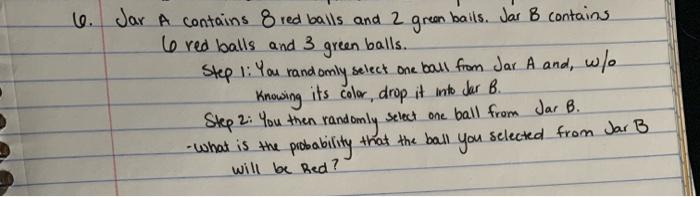 6. Jar A contains 8 red balls and 2 green balls. Jar B contains
6 red balls and 3 green balls.
Step 1: You randomly select one ball from Jar A and, w/o
knowing its color, drop it into Jar B.
Step 2: You then randomly select one ball from Jar B.
-What is the probability that the ball you selected from Jar B
will be Red?